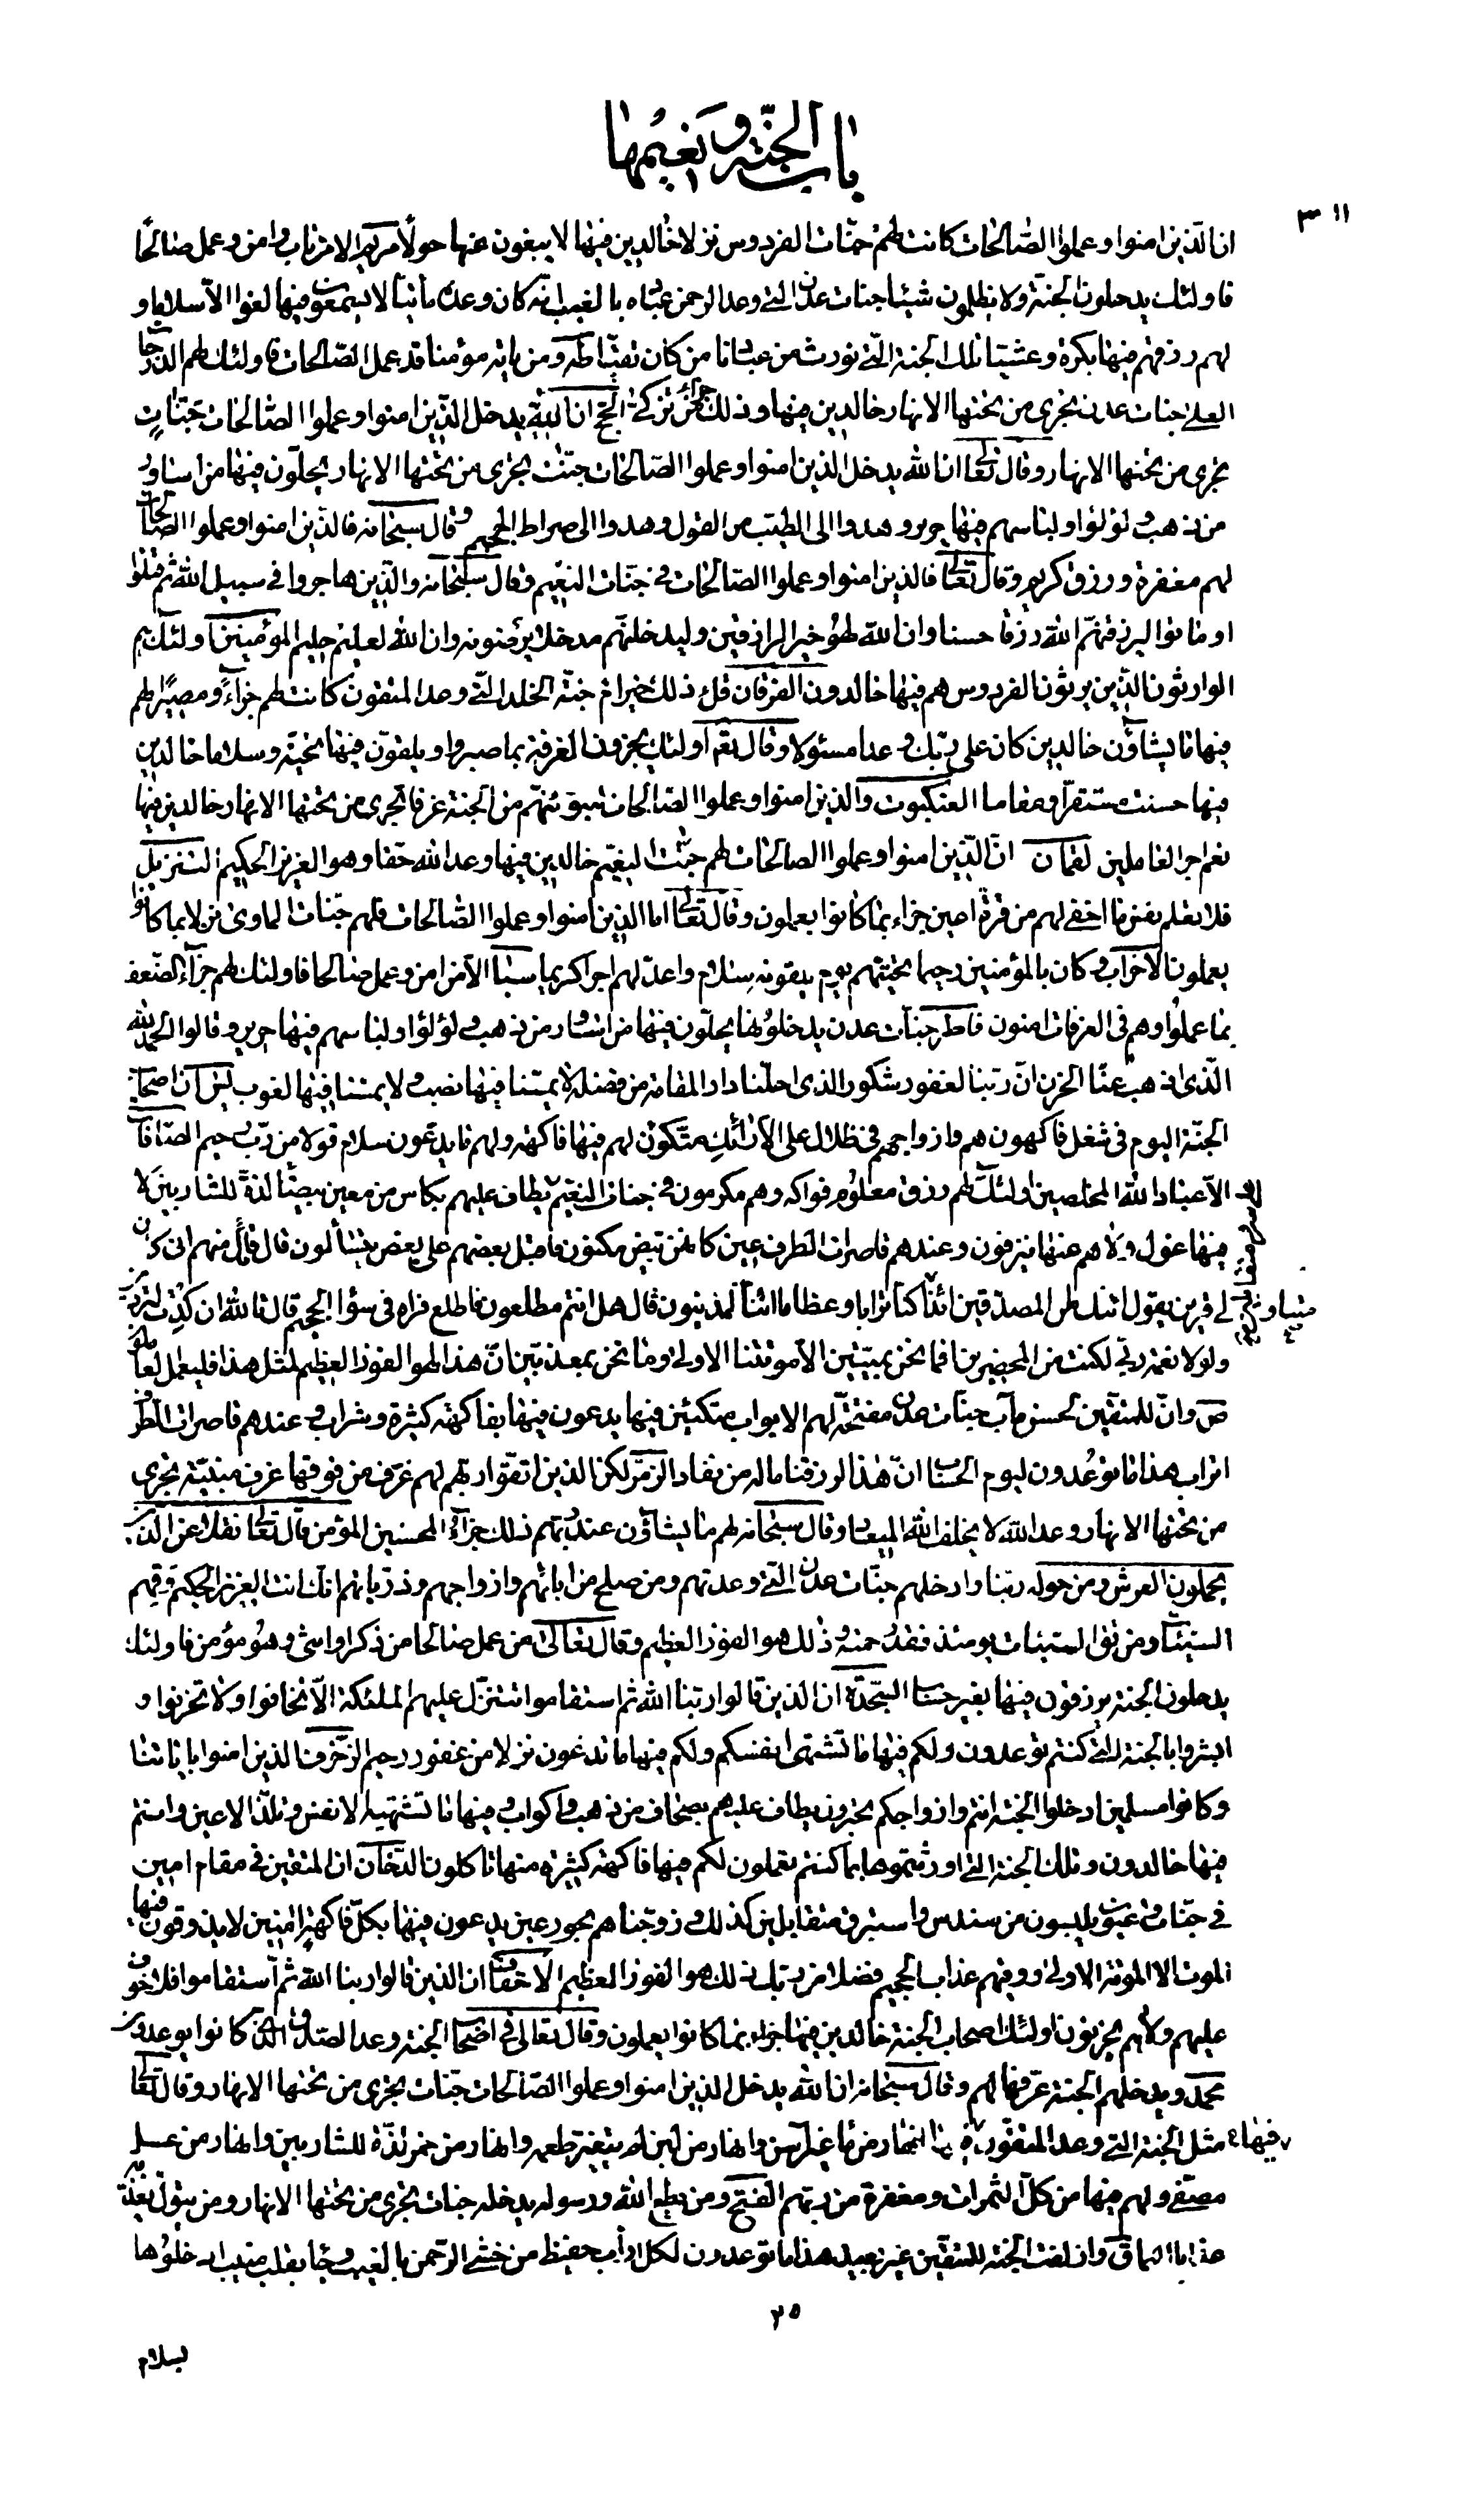 باب الجنّة و نعيمها
١١ ٣
انّ الّذين امنوا و عملوا الصّالحات كانت لهم جنّات الفردوس نزلا خالدين فيها لا يبغون عنها حولاً مريم الا من تاب وامن وعمل صالحًا
فاولئك يدخلون الجنّة ولا يظلمون شيئا جنات عدن التى وعد الرحمن عباده بالغيب انه كان وعده مأتيّا لا يسمعون فيها لغوا الاّ سلاما و
لهم رزقهم فيها بكرة وعشيّا تلك الجنة الّتى نورث من عبادنا من كان تقيّا طه ومن يأته مؤمنا قد عمل الصّالحات فاولئك لهم الدّرجات
العلى جنات عدن تجرى من تحتها الانهار خالدين فيها وذلك جزاء من تزكّى الحجّ ان اللّه يدخل الّذين امنوا وعملوا الصّالحات جنّاتٍ
تجرى من تحتها الانهار وقال تعالى ان الله يدخل الذين امنوا وعملوا الصّالحات جنّت تجرى من تحتها الانهار يحلّون فيها من اساور
من ذهب و لؤلؤا ولباسهم فيها حرير وهدوا الى الطيّب من القول وهدوا الى صراط الحميد وقال سبحانه فالّذين امنوا وعملوا الصّالحات
لهم مغفرة ورزق كريم وقال تعالى فالذين امنوا وعملوا الصّالحات فى جنّات النعيم وقال سبحانه والّذين هاجروا فى سبيل الله ثم قتلوا
او ماتوا ليرزقنّهم الله رزقا حسنا وان الله لهو خير الرازقين وليدخلنّهم مدخلا يرضونه وان الله لعليم حليم المؤمنين اولئك هم
الوارثون الّذين يرثون الفردوس هم فيها خالدون الفرقان قل ذلك خير ام جنّة الخلد الّتى وعد المتقون كانت لهم جزاءً ومصيرًا لهم
فيها ما يشاؤن خالدين كان على ربّك وعدا مسئولا وقال تعم اولئك يجزون الغرفة بما صبروا ويلقون فيها تحيّة وسلاما خالدين
فيها حسنت مستقرّا ومقاما العنكبوت والذين امنوا وعملوا الصّالحات لنبوّئنّهم من الجنة غرفا تجرى من تحتها الانهار خالدين فيها
نعم اجر العاملين لقمان انّ الّذين امنوا وعملوا الصالحات لهم جنّت النعيم خالدين فيها وعد الله حقا وهو العزيز الحكيم التنزيل
فلا تعلم نفس ما اخفى لهم من قرّة اعين جزاء بما كانوا يعملون وقال تعالى اما الذين امنوا وعملوا الصّالحات فلهم جنّات المأوى نزلا بما كانوا
يعملون الاحزاب وكان بالمؤمنين رحيما تحيّتهم يوم يلقونه سلام واعدّ لهم اجرا كريما سبأ الاّ من امن وعمل صالحا فاولئك لهم جزآء الضّعف
بما عملوا وهم فى الغرفات امنون فاطر جنّات عدن يدخلونها يحلّون فيها من اساور من ذهب و لؤلؤا ولباسهم فيها حرير وقالوا الحمد لله
الّذى اذهب عنّا الحزن انّ ربّنا لغفور شكور الذى احلّنا دار المقامة من فضله لا يمسّنا فيها نصب ولا يمسّنا فيها لغوب يس انّ اصحاب
الجنّة اليوم فى شغل فاكهون هم وازواجهم فى ظلال على الأرائك متّكؤن لهم فيها فاكهة ولهم ما يدّعون سلام قولا من ربّ رحيم الصّافات
الاّ عباد الله المخلصين اولئك لهم رزق معلوم فواكه وهم مكرمون فى جنات النعيم يطاف عليهم بكأس من معين بيضآ لذةً للشاربين لا
فيها غول ولا هم عنها ينزفون وعندهم قاصرات الطرف عين كانهن بيض مكنون فاقبل بعضهم على بعض يتسألون قال قائل منهم انى كان
لى قرين يقول ائنك لمن المصدّقين ائذا كنا ترابا وعظاما ائنا لمدينون قال هل انتم مطلعون فاطلع فراه فى سؤا الجحيم قال تالله ان كدت لتردين
ولولا نعمة ربّى لكنت من المحضرين افما نحن بميّتين الاّ موتتنا الاولى وما نحن بمعذّبين انّ هذا لهو الفوز العظيم لمثل هذا فليعمل العاملون
ص وانّ للمتقين لحسن مآب جنّات عدن مفتّحة لهم الابواب متكئين فيها يدعون فيها بفاكهة كثيرة وشراب وعندهم قاصرات الطرف
اتراب هذا ما توعدون ليوم الحساب انّ هذا لرزقنا ماله من نفاد الزّمر لكن الذين اتقوا ربّهم لهم غرف من فوقها غرف مبنيّة تجرى
من تحتها الانهار وعد الله لا يخلف الله الميعاد وقال سبحانه لهم ما يشاؤن عند ربّهم ذلك جزاء المحسنين المؤمن قال تعالى نقلا عن الذين
يحملون العرش ومن حوله ربّنا وادخلهم جنّات عدن الّتى وعدتهم ومن صلح من ابائهم وازواجهم وذرّياتهم انّك انت العزيز الحكيم وقهم
السيّئات ومن تق السيئات يومئذ فقد رحمته وذلك هو الفوز العظيم وقال تعالى من عمل صالحا من ذكر او انثى وهو مؤمن فاولئك
يدخلون الجنة يرزقون فيها بغير حساب السّجدة ان الذين قالوا ربّنا الله ثم استقاموا تتنزّل عليهم الملئكة الاّ تخافوا ولا تحزنوا و
ابشروا بالجنة الّتى كنتم توعدون ولكم فيها ما تشتهى انفسكم ولكم فيها ما تدعون نزلا من غفور رحيم الزّخرف الذين امنوا باياتنا
وكانوا مسلمين ادخلوا الجنة انتم وازواجكم تحبرون يطاف عليهم بصحاف من ذهب واكواب وفيها ما تشتهيه الانفس وتلذّ الاعين وانتم
فيها خالدون وتلك الجنة الّتى اورثتموها بما كنتم تعملون لكم فيها فاكهة كثيرة منها تاكلون الدّخان انّ المتقين فى مقام امين
فى جنّات وعيون يلبسون من سندس واستبرق متقابلين كذلك وزوّجناهم بحور عين يدعون فيها بكلّ فاكهة امنين لا يذوقون فيها
الموت الا الموتة الاولى ووقهم عذاب الجحيم فضلا من ربّك ذلك هو الفوز العظيم الاحقاف ان الذين قالوا ربنا الله ثمّ استقاموا فلا خوف
عليهم ولا هم يحزنون اولئك اصحاب الجنة خالدين فيها جزاء بما كانوا يعملون وقال تعالى فى اصحاب الجنة وعد الصّدق الّذى كانوا يوعدون
محمّد ويدخلهم الجنة عرّفها لهم وقال سبحانه ان الله يدخل الذين امنوا وعملوا الصّالحات جنّات تجرى من تحتها الانهار وقال تعالى
مثل الجنة الّتى وعد المتقون فيها انهار من ماء غير آسن وانهار من لبن لم يتغيّر طعمه وانهار من خمر لذّة للشاربين وانهار من عسل
مصفّى ولهم فيها من كلّ الثمرات ومغفرة من ربّهم الفتح ومن يطع الله ورسوله يدخله جنات تجرى من تحتها الانهار ومن يتولّ يعذّبه
عذابا اليما ق وازلفت الجنة للمتقين غير بعيد هذا ما توعدون لكل اوّاب حفيظ من خشى الرّحمن بالغيب وجاء بقلب منيب ادخلوها
٢٥
بسلام